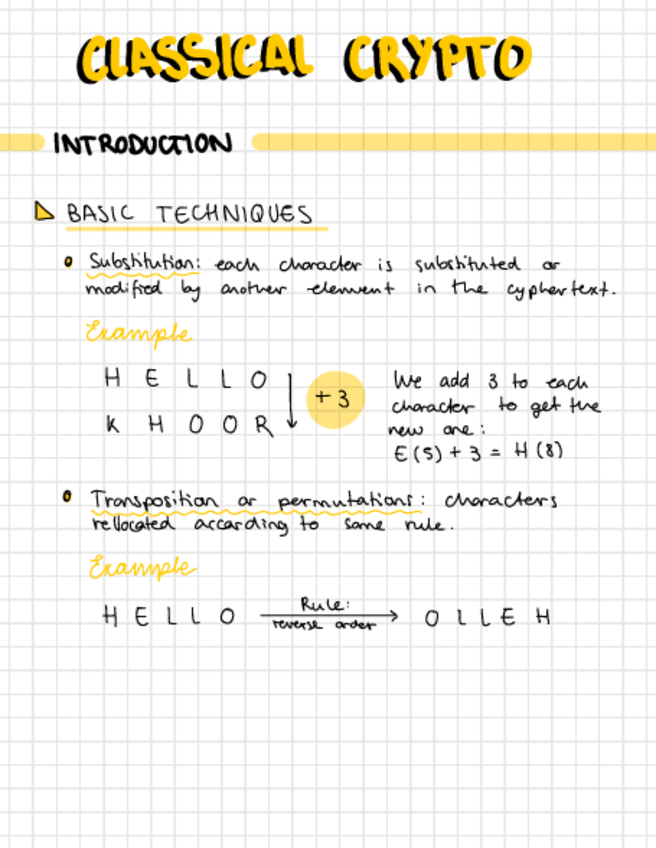 CLASSICAL CRYPTO
INTRODUCTION
BASIC TECHNIQUES
Substitution: each character is substituted or
modified by another element in the cyphertext.
Example
H E L L O
K H O O R
+3
We add 3 to each
character to get the
new one:
E(5) + 3 = H(8)
Transposition or permutations: characters
rellocated according to some rule.
Example
H E L L O
Rule:
reverse order
O L L E H